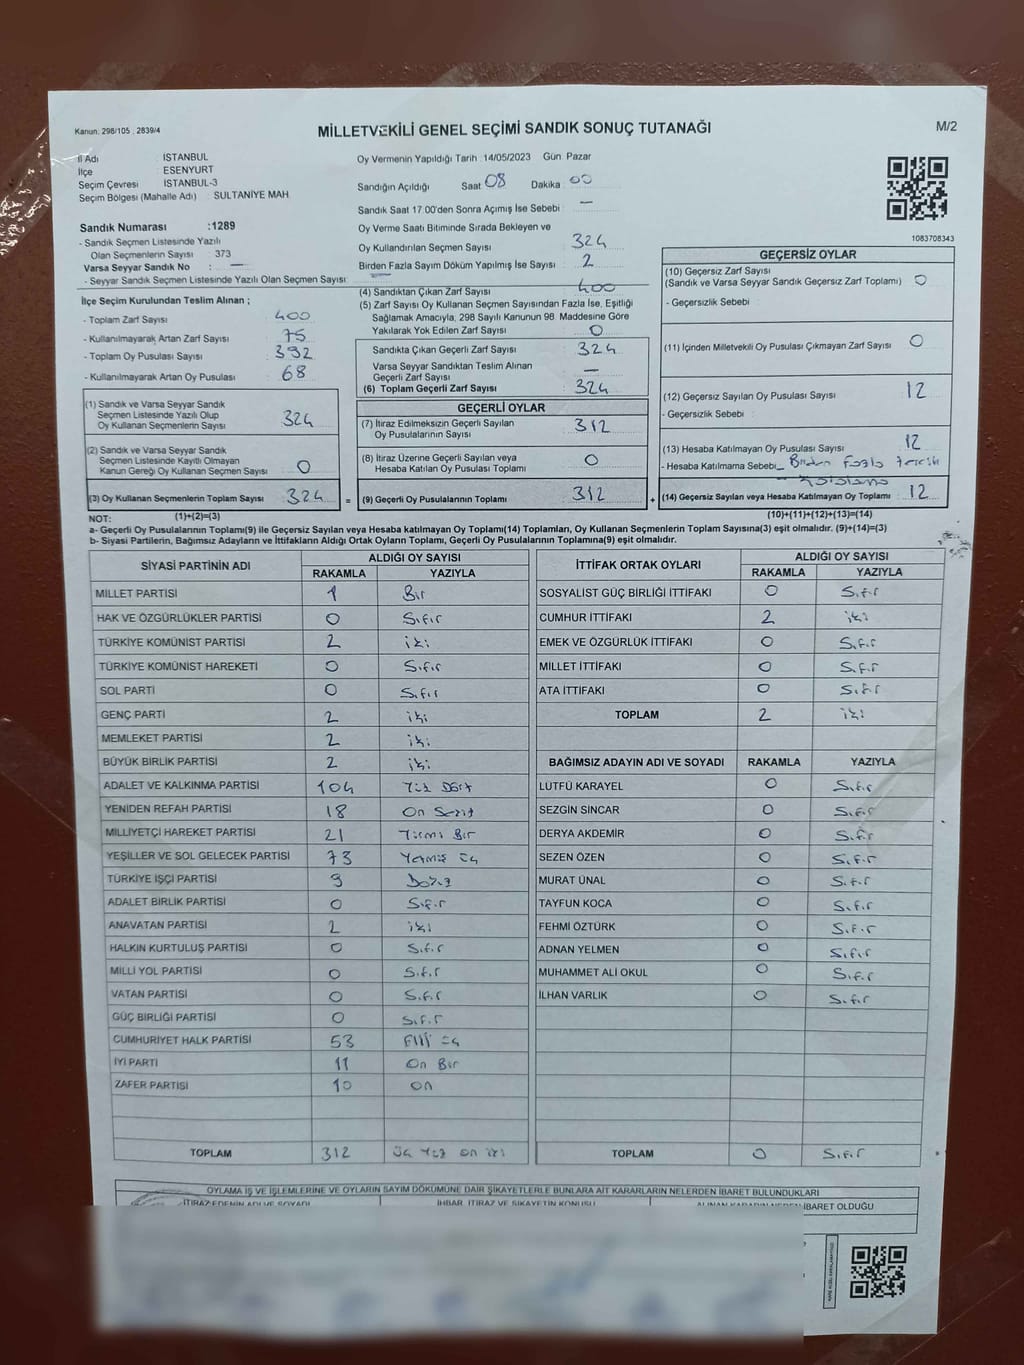 Kanun: 298/105 , 2839/4
MİLLETVEKİLİ GENEL SEÇİMİ SANDIK SONUÇ TUTANAĞI
M/2
İl Adı İSTANBUL
İlçe ESENYURT
Seçim Çevresi İSTANBUL-3
Seçim Bölgesi (Mahalle Adı) : SULTANİYE MAH
Sandık Numarası :1289
- Sandık Seçmen Listesinde Yazılı
Olan Seçmenlerin Sayısı : 373
Varsa Seyyar Sandık No : —
- Seyyar Sandık Seçmen Listesinde Yazılı Olan Seçmen Sayısı : —
Oy Vermenin Yapıldığı Tarih :14/05/2023 Gün: Pazar
Sandığın Açıldığı Saat 08 Dakika : 00
Sandık Saat 17.00'den Sonra Açımış İse Sebebi : —
Oy Verme Saati Bitiminde Sırada Bekleyen ve
Oy Kullandırılan Seçmen Sayısı 324
Birden Fazla Sayım Döküm Yapılmış İse Sayısı : 2
1083708343
İlçe Seçim Kurulundan Teslim Alınan ;
- Toplam Zarf Sayısı : 400
- Kullanılmayarak Artan Zarf Sayısı : 75
- Toplam Oy Pusulası Sayısı : 392
- Kullanılmayarak Artan Oy Pusulası : 68
(1) Sandık ve Varsa Seyyar Sandık
Seçmen Listesinde Yazılı Olup
Oy Kullanan Seçmenlerin Sayısı : 324
(2) Sandık ve Varsa Seyyar Sandık
Seçmen Listesinde Kayıtlı Olmayan
Kanun Gereği Oy Kullanan Seçmen Sayısı : 0
(3) Oy Kullanan Seçmenlerin Toplam Sayısı : 324 =
(1)+(2)=(3)
(4) Sandıktan Çıkan Zarf Sayısı : 400
(5) Zarf Sayısı Oy Kullanan Seçmen Sayısından Fazla İse, Eşitliği
Sağlamak Amacıyla, 298 Sayılı Kanunun 98. Maddesine Göre
Yakılarak Yok Edilen Zarf Sayısı : 0
Sandıkta Çıkan Geçerli Zarf Sayısı : 324
Varsa Seyyar Sandıktan Teslim Alınan
Geçerli Zarf Sayısı : —
(6) Toplam Geçerli Zarf Sayısı : 324
GEÇERLİ OYLAR
(7) İtiraz Edilmeksizin Geçerli Sayılan
Oy Pusulalarının Sayısı : 312
(8) İtiraz Üzerine Geçerli Sayılan veya
Hesaba Katılan Oy Pusulası Toplamı : 0
(9) Geçerli Oy Pusulalarının Toplamı : 312 +
GEÇERSİZ OYLAR
(10) Geçersiz Zarf Sayısı
(Sandık ve Varsa Seyyar Sandık Geçersiz Zarf Toplamı) : 0
- Geçersizlik Sebebi :
(11) İçinden Milletvekili Oy Pusulası Çıkmayan Zarf Sayısı : 0
(12) Geçersiz Sayılan Oy Pusulası Sayısı : 12
- Geçersizlik Sebebi :
(13) Hesaba Katılmayan Oy Pusulası Sayısı : 12
- Hesaba Katılmama Sebebi : Birden Fazla
(14) Geçersiz Sayılan veya Hesaba Katılmayan Oy Toplamı : 12
(10)+(11)+(12)+(13)=(14)
NOT:
a- Geçerli Oy Pusulalarının Toplamı(9) ile Geçersiz Sayılan veya Hesaba katılmayan Oy Toplamı(14) Toplamları, Oy Kullanan Seçmenlerin Toplam Sayısına(3) eşit olmalıdır. (9)+(14)=(3)
b- Siyasi Partilerin, Bağımsız Adayların ve İttifakların Aldığı Ortak Oyların Toplamı, Geçerli Oy Pusulalarının Toplamına(9) eşit olmalıdır.
SİYASİ PARTİNİN ADI ALDIĞI OY SAYISI
RAKAMLA YAZIYLA
MİLLET PARTİSİ 1 Bir
HAK VE ÖZGÜRLÜKLER PARTİSİ 0 Sıfır
TÜRKİYE KOMÜNİST PARTİSİ 2 iki
TÜRKİYE KOMÜNİST HAREKETİ 0 Sıfır
SOL PARTİ 0 Sıfır
GENÇ PARTİ 2 iki
MEMLEKET PARTİSİ 2 iki
BÜYÜK BİRLİK PARTİSİ 2 iki
ADALET VE KALKINMA PARTİSİ 104 Yüz Dört
YENİDEN REFAH PARTİSİ 18 On Sekiz
MİLLİYETÇİ HAREKET PARTİSİ 21 Yirmi Bir
YEŞİLLER VE SOL GELECEK PARTİSİ 73 Yetmiş üç
TÜRKİYE İŞÇİ PARTİSİ 9 Dokuz
ADALET BİRLİK PARTİSİ 0 Sıfır
ANAVATAN PARTİSİ 2 iki
HALKIN KURTULUŞ PARTİSİ 0 Sıfır
MİLLİ YOL PARTİSİ 0 Sıfır
VATAN PARTİSİ 0 Sıfır
GÜÇ BİRLİĞİ PARTİSİ 0 Sıfır
CUMHURİYET HALK PARTİSİ 53 Elli üç
İYİ PARTİ 11 On Bir
ZAFER PARTİSİ 10 On
TOPLAM 312 Üç Yüz On iki
İTTİFAK ORTAK OYLARI ALDIĞI OY SAYISI
RAKAMLA YAZIYLA
SOSYALİST GÜÇ BİRLİĞİ İTTİFAKI 0 Sıfır
CUMHUR İTTİFAKI 2 iki
EMEK VE ÖZGÜRLÜK İTTİFAKI 0 Sıfır
MİLLET İTTİFAKI 0 Sıfır
ATA İTTİFAKI 0 Sıfır
TOPLAM 2 iki
BAĞIMSIZ ADAYIN ADI VE SOYADI RAKAMLA YAZIYLA
LÜTFÜ KARAYEL 0 Sıfır
SEZGİN SİNCAR 0 Sıfır
DERYA AKDEMİR 0 Sıfır
SEZEN ÖZEN 0 Sıfır
MURAT ÜNAL 0 Sıfır
TAYFUN KOCA 0 Sıfır
FEHMİ ÖZTÜRK 0 Sıfır
ADNAN YELMEN 0 Sıfır
MUHAMMET ALİ OKUL 0 Sıfır
İLHAN VARLIK 0 Sıfır
TOPLAM 0 Sıfır
OYLAMA İŞ VE İŞLEMLERİNE VE OYLARIN SAYIM DÖKÜMÜNE DAİR ŞİKAYETLERLE BUNLARA AİT KARARLARIN NELERDEN İBARET BULUNDUKLARI
İTİRAZ EDENİN ADI VE SOYADI İHBAR, İTİRAZ VE ŞİKAYETİN KONUSU ALINAN KARARIN NEDEN İBARET OLDUĞU